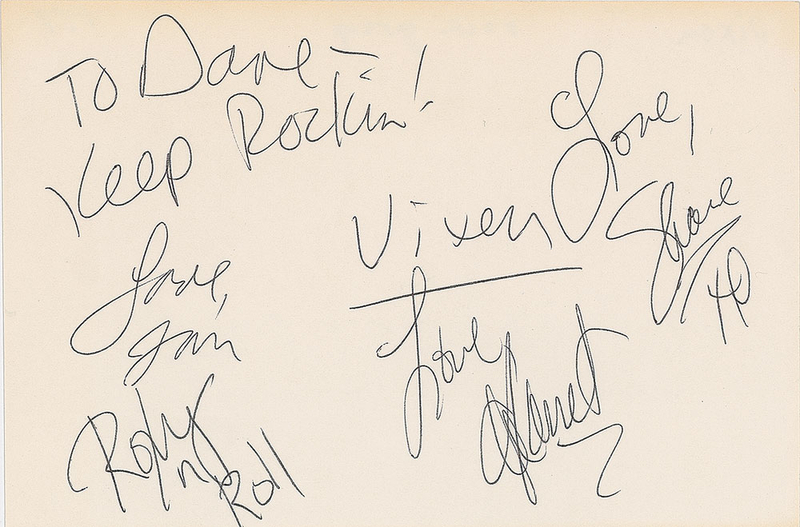 To Dave -
Keep Rockin'!
Love,
Jan
Rock
n
Roll
Vixen
Love,
Janet
Love,
Share